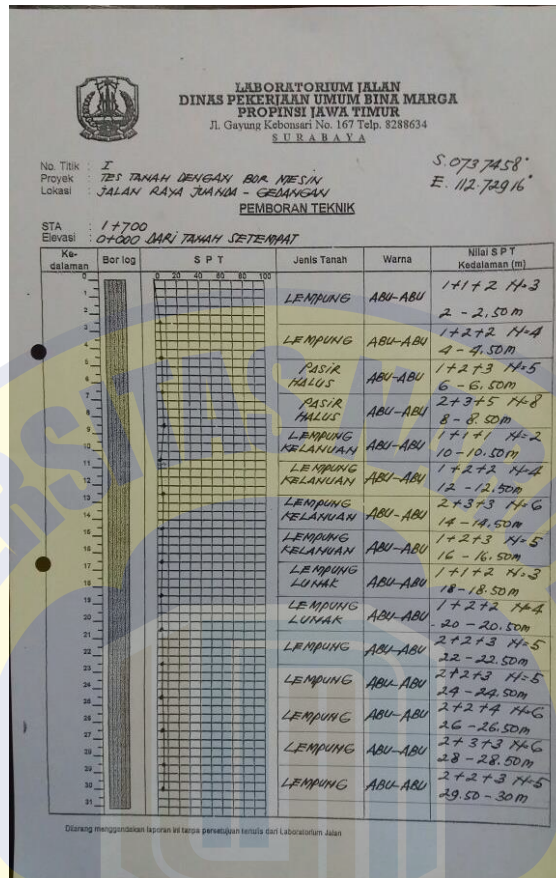 LABORATORIUM JALAN
DINAS PEKERJAAN UMUM BINA MARGA
PROPINSI JAWA TIMUR
Jl. Gayung Kebonsari No. 167 Telp. 8288634
SURABAYA
No. Titik : I
S. 07.37458°
Proyek : TES TANAH DENGAN BOR MESIN
E. 112.72916°
Lokasi : JALAN RAYA JUANDA - GEDANGAN
PEMBORAN TEKNIK
STA : 1+700
Elevasi : 0+000 DARI TANAH SETEMPAT
Ke-dalaman Bor log S P T Jenis Tanah Warna Nilai S P T Kedalaman (m)
0 20 40 60 80 100
LEMPUNG ABU-ABU 1+1+2 N=3
2 - 2,50m
LEMPUNG ABU-ABU 1+2+2 N=4
4 - 4,50m
PASIR HALUS ABU-ABU 1+2+3 N=5
6 - 6.50m
PASIR HALUS ABU-ABU 2+3+5 N=8
8 - 8.50m
LEMPUNG KELANUAN ABU-ABU 1+1+1 N=2
10 - 10.50m
LEMPUNG KELANUAN ABU-ABU 1+2+2 N=4
12 - 12.50m
LEMPUNG KELANUAN ABU-ABU 2+3+3 N=6
14 - 14.50m
LEMPUNG KELANUAN ABU-ABU 1+2+3 N=5
16 - 16.50m
LEMPUNG LUNAK ABU-ABU 1+1+2 N=3
18 - 18.50m
LEMPUNG LUNAK ABU-ABU 1+2+2 N=4
20 - 20.50m
LEMPUNG ABU-ABU 2+2+3 N=5
22 - 22.50m
LEMPUNG ABU-ABU 2+2+3 N=5
24 - 24.50m
LEMPUNG ABU-ABU 2+2+4 N=6
26 - 26.50m
LEMPUNG ABU-ABU 2+3+3 N=6
28 - 28.50m
LEMPUNG ABU-ABU 2+2+3 N=5
29.50 - 30m
Dilarang menggandakan laporan ini tanpa persetujuan tertulis dari Laboratorium Jalan